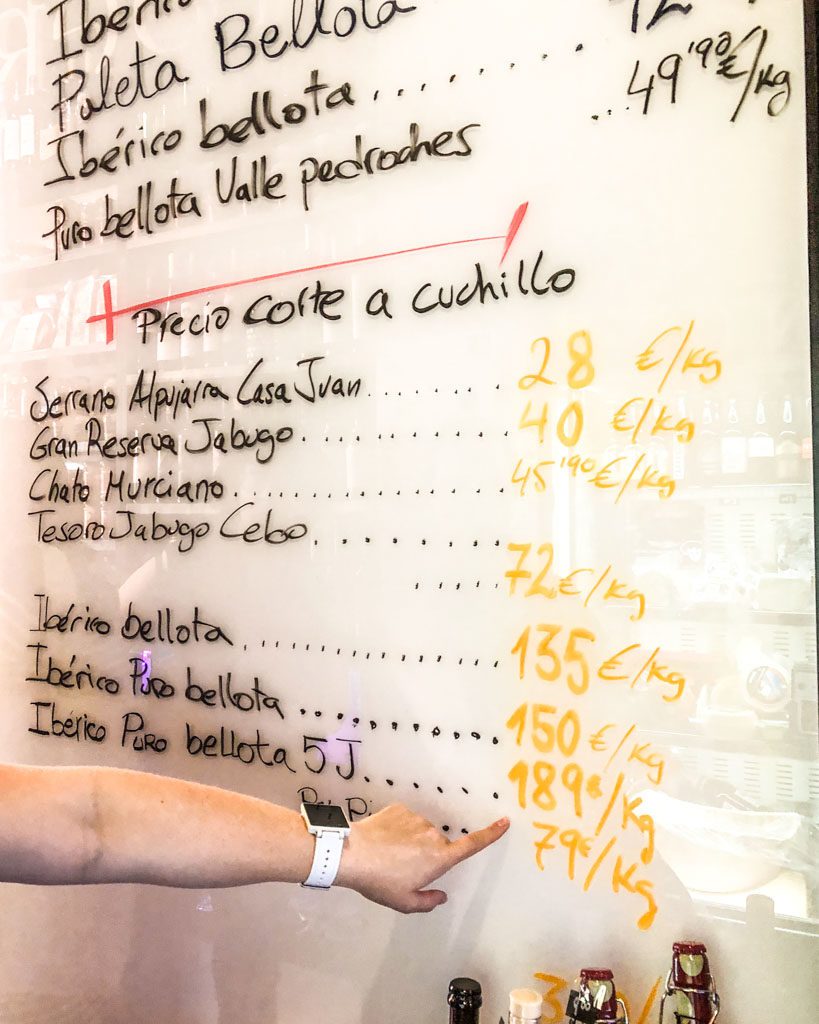 Paleta Bellota
Ibérico bellota ........ 12
Puro bellota Valle pedroches ... 49'90€/kg
Precio corte a cuchillo
Serrano Alpujarra Casa Juan ........ 28 €/kg
Gran Reserva Jabugo ............ 40 €/kg
Chato Murciano ................ 45'90€/kg
Tesoro Jabugo Cebo ........ 72€/kg
Ibérico bellota ................ 135€/kg
Ibérico Puro bellota ........... 150€/kg
Ibérico Puro bellota 5J ....... 189€/kg
79€/kg